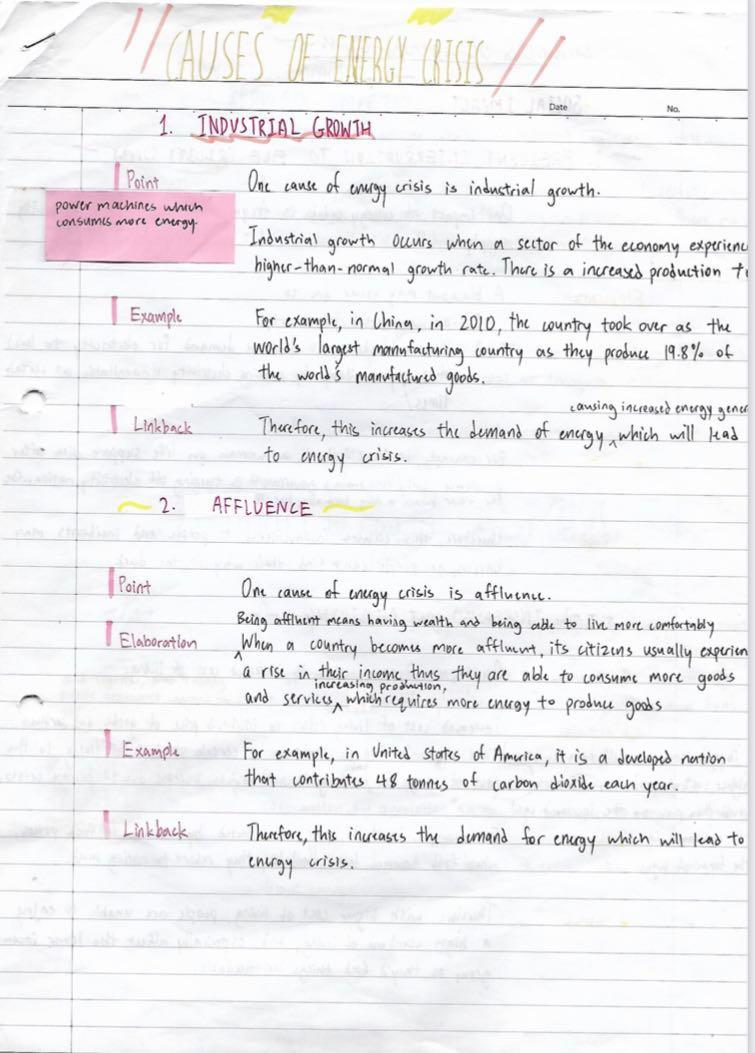 CAUSES OF ENERGY CRISIS
Date No.
1. INDUSTRIAL GROWTH
Point One cause of energy crisis is industrial growth.
power machines which
consumes more energy.
Industrial growth occurs when a sector of the economy experienc
higher-than-normal growth rate. There is a increased production
Example For example, in China, in 2010, the country took over as the
world's largest manufacturing country as they produce 19.8% of
the world's manufactured goods.
causing increased energy gener
Linkback Therefore, this increases the demand of energy ^ which will lead
to energy crisis.
2. AFFLUENCE
Point One cause of energy crisis is affluence.
Being affluent means having wealth and being able to live more comfortably
Elaboration ^ When a country becomes more affluent, its citizens usually experien
a rise in their income, thus they are able to consume more goods
increasing production,
and services ^ which requires more energy to produce goods
Example For example, in United States of America, it is a developed nation
that contributes 48 tonnes of carbon dioxide each year.
Linkback Therefore, this increases the demand for energy which will lead to
energy crisis.